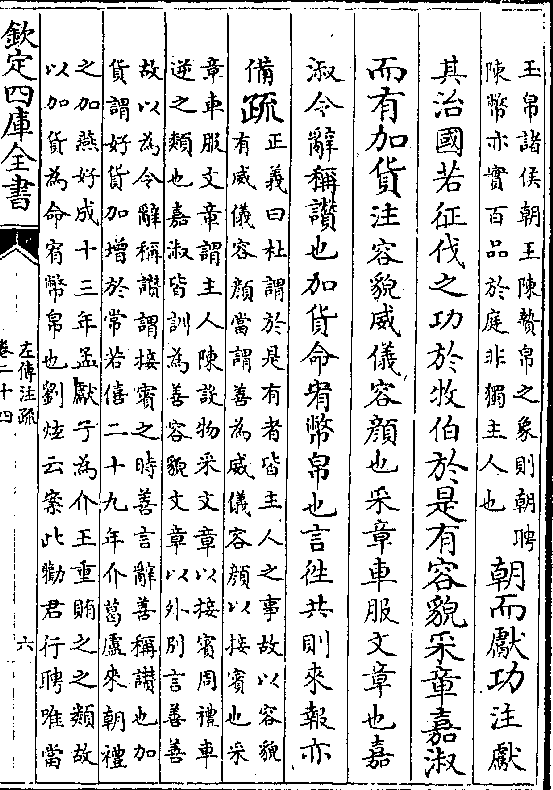 玉帛諸侯朝王陳贄帛之象則朝聘
陳幣亦實百品於庭非獨主人也
朝而獻功注獻
其治國若征伐之功於牧伯於是有容貌采章嘉淑
而有加貨注容貌威儀容顔也采章車服文章也嘉
淑令辭稱讃也加貨命宥幣帛也言徃共則來報亦
備疏
正義曰杜謂於是有者皆主人之事故以容貌
有威儀容顔當謂善為威儀容顔以接賓也采
章車服文章謂主人陳設物采文章以接賓周禮車
逆之類也嘉淑皆訓為善容貌文章以外別言善善
故以為令辭稱讃謂接賓之時善言辭善稱讃也加
貨謂好貨加增於常若僖二十九年介葛盧來朝禮
之加燕好成十三年孟獻子為介王重賄之之類故
以加貨為命宥幣帛也劉炫云案此勸君行聘唯當
欽定四庫全書
左傳注疏
卷二十四
六